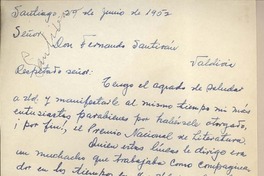 Santiago, 27 de junio de 1952
Señor
Don Fernando Santiván
Valdivia
Respetado señor:
Tengo el agrado de saludar
a Ud. y manifestarle al mismo tiempo mis más
entusiastas parabienes por habérsele otorgado,
¡por fin!, el Premio Nacional de Literatura.
Quien estas líneas le dirige era
un muchacho que trabajaba como compagina
dor en los tiempos